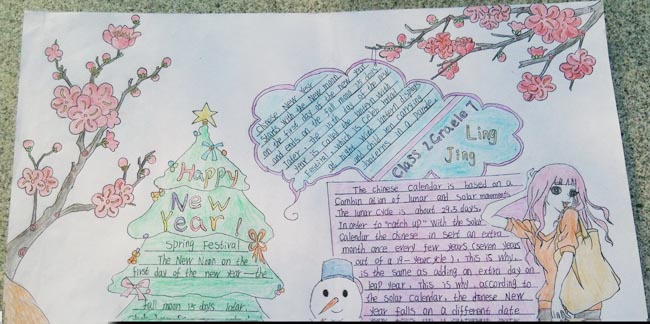 Happy
New
Year!
Spring Festival
The New Moon on the
first day of the new year — the
full moon 15 days later.
Chinese New Year
starts with the New Moon
on the first day of the new year
and ends on the full moon 15 days
later. The 15th day of the new
year is called the Lantern
Festival, which is celebrated
at night with lantern displays
and children carrying
lanterns in a parade.
Class 2 Grade 7
Ling
Jing
The chinese calendar is based on a
Combin ation of lunar and solar movements
The lunar cycle is about 29.5 days.
In order to "catch up" with the Solar
Calendar the chinese in sert an extra
month once every few years (seven years
out of a 19-year cycle). This is why
is the same as adding an extra day on
leap year. This is why, according to
the solar calendar, the chinese New
year falls on a different date